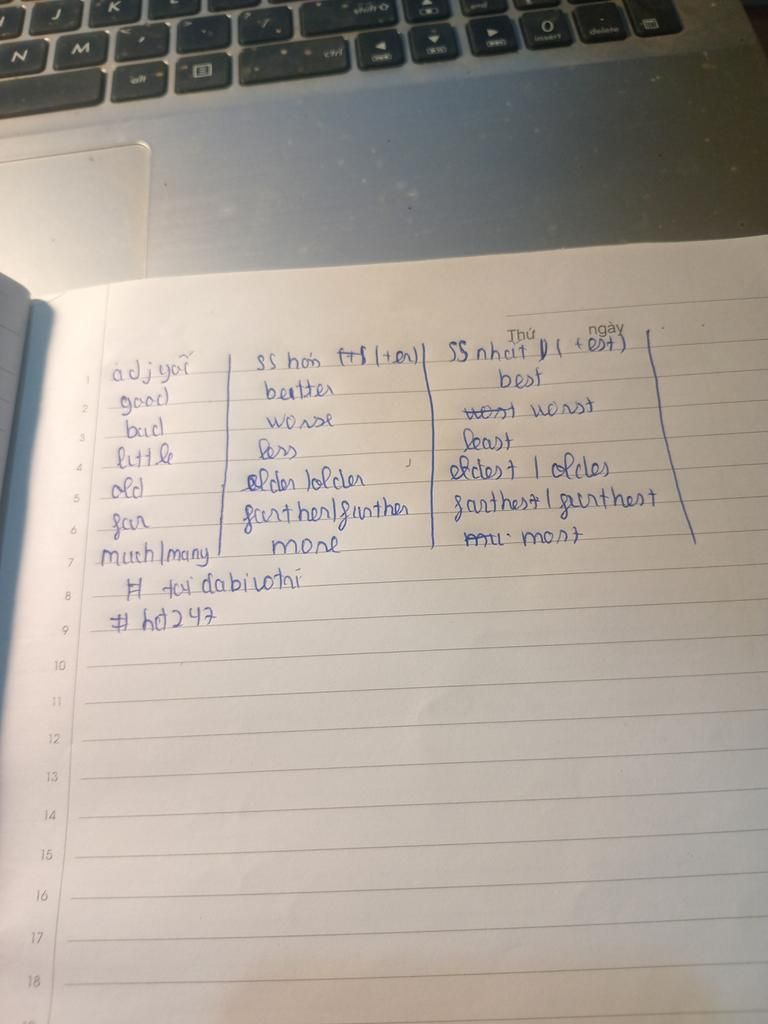 J K shift
N M alt ctrl end O insert delete
Thứ ngày
adj SS hơn (+er) SS nhất (+est)
good better best
bad worse worst
little less least
old elder/older eldest / oldes
far farther/further farthest/furthest
much/many more most
# tơi dabirotri
# hd247
1
2
3
4
5
6
7
8
9
10
11
12
13
14
15
16
17
18